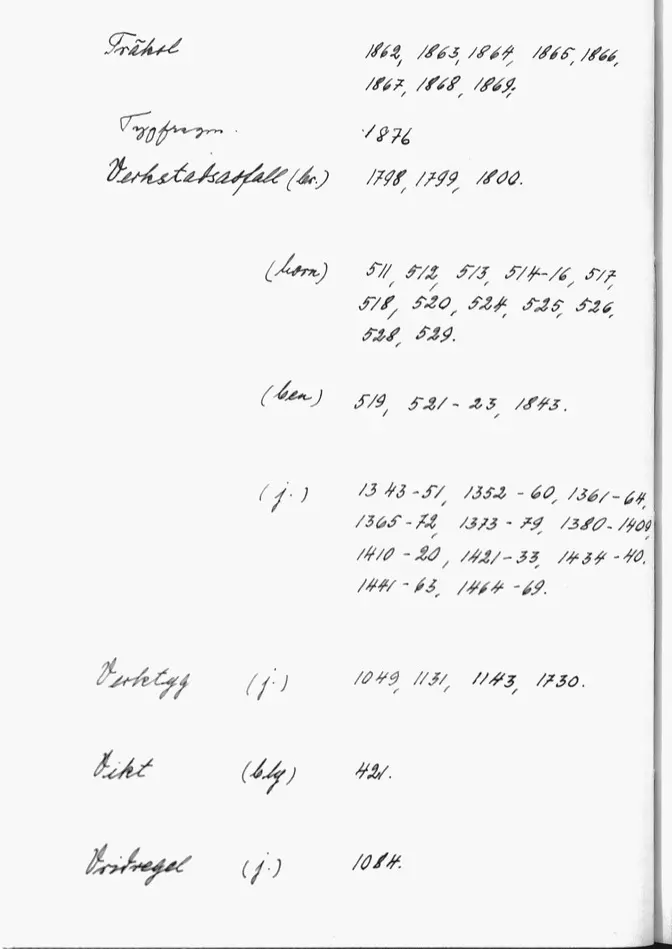 Träkol 1862, 1863, 1864, 1865, 1866,
1867, 1868, 1869.
Tygfragm. 1876
Verkstadsavfall (br.) 1798, 1799, 1800.
(horn) 511, 512, 513, 514-16, 517,
518, 520, 524, 525, 526,
528, 529.
(ben) 519, 521-23, 1843.
(j.) 1343-51, 1352-60, 1361-64,
1365-72, 1373-79, 1380-1409,
1410-20, 1421-33, 1434-40.
1441-63, 1464-69.
Verktyg (j.) 1049, 1131, 1143, 1730.
Vikt (bly) 421.
Vridregel (j.) 1084.